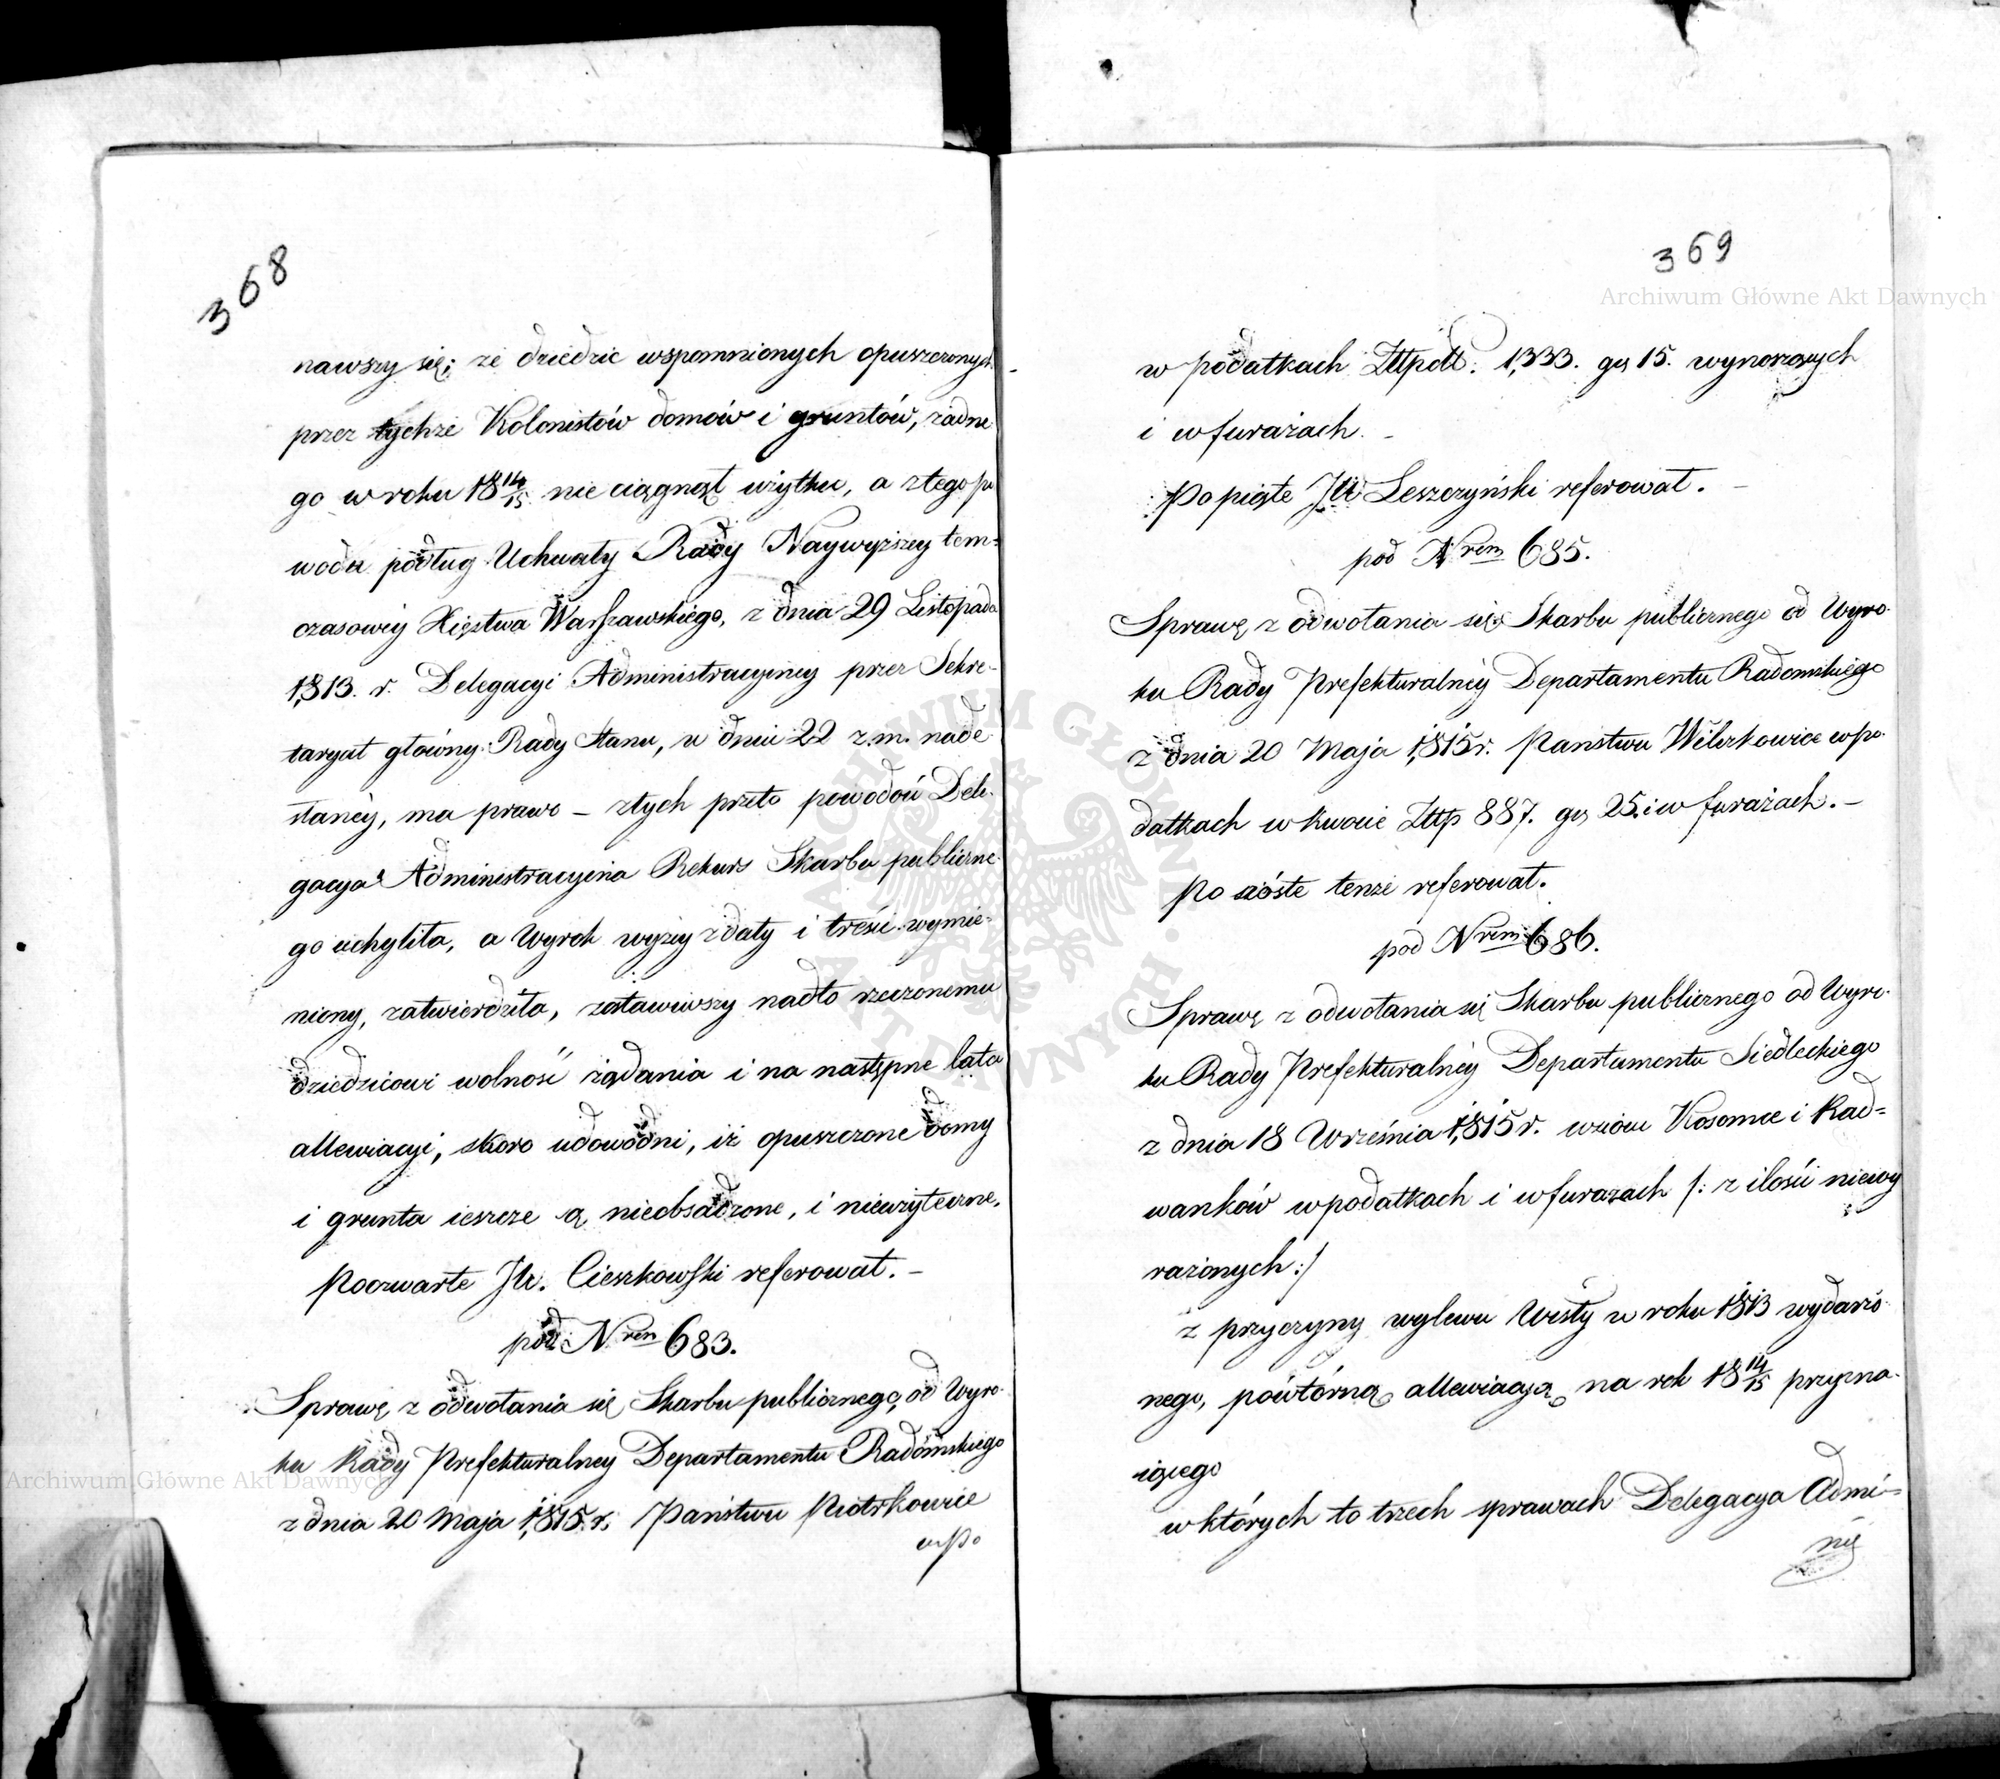 368
nawszy się; że dziedzic wspomnionych opuszczonych
przez tychże Kolonistów domów i gruntów, żadne
go w roku 18 14/15 nie ciągnął użytku, a z tego po
wodu podług Uchwały Rady Naywyższey tym=
czasowéy Xięstwa Warszawskiego, z dnia 29 Listopada
1813. r. Delegacyi Administracyinéy przez Sekre-
taryat główny Rady Stanu, w dniu 22 z. m. nade
słanéy, ma prawo – z tych przeto powodów Dele-
gacya Administracyina Rekurs Skarbu publiczne-
go uchyliła, a Wyrok wyżéy z daty i treści wymie=
niony, zatwierdziła, zostawiwszy nadto rzeczonemu
dziedzicowi wolność żądania i na następne lata
allewiacyi, skoro udowodni, iż opuszczone domy
i grunta ieszcze są nieobsadzone, i nieużyteczne.
Poczwarte JW. Cieszkowski referował. –
pod Nrem 683.
Sprawę z odwołania się Skarbu publicznego, od Wyro-
ku Rady Prefekturalnéy Departamentu Radomskiego
z dnia 20 Maja 1815. r. Państwu Piotrkowice
w po
369
Archiwum Główne Akt Dawnych
w podatkach Złtp. 1,333. gr 15. wynoszących
i w furażach. –
Popiąte JW Leszczyński referował. –
pod Nrem 685.
Sprawę z odwołania się Skarbu publicznego od Wyro-
ku Rady Prefekturalnéy Departamentu Radomskiego
z dnia 20 Maja 1815 r. Państwu w po-
datkach w kwocie Złtp 887. gr 25. i w furażach. –
Po szóste tenże referował.
pod Nrem 686.
Sprawę z odwołania się Skarbu publicznego od Wyro-
ku Rady Prefekturalnéy Departamentu Siedleckiego
z dnia 18 Września 1815 r. wsiów Kosomce i Rad=
wanków w podatkach i w furażach /: z ilości niewy
rażonych :/
z przyczyny wylewu Wisły w roku 1813 wydarzo-
nego, powtórną allewiacyą na rok 18 14/15 przyzna-
iącego
w których to trzech sprawach Delegacya Admi=
nis
Archiwum Główne Akt Dawnych
ARCHIWUM GŁÓWNE AKT DAWNYCH